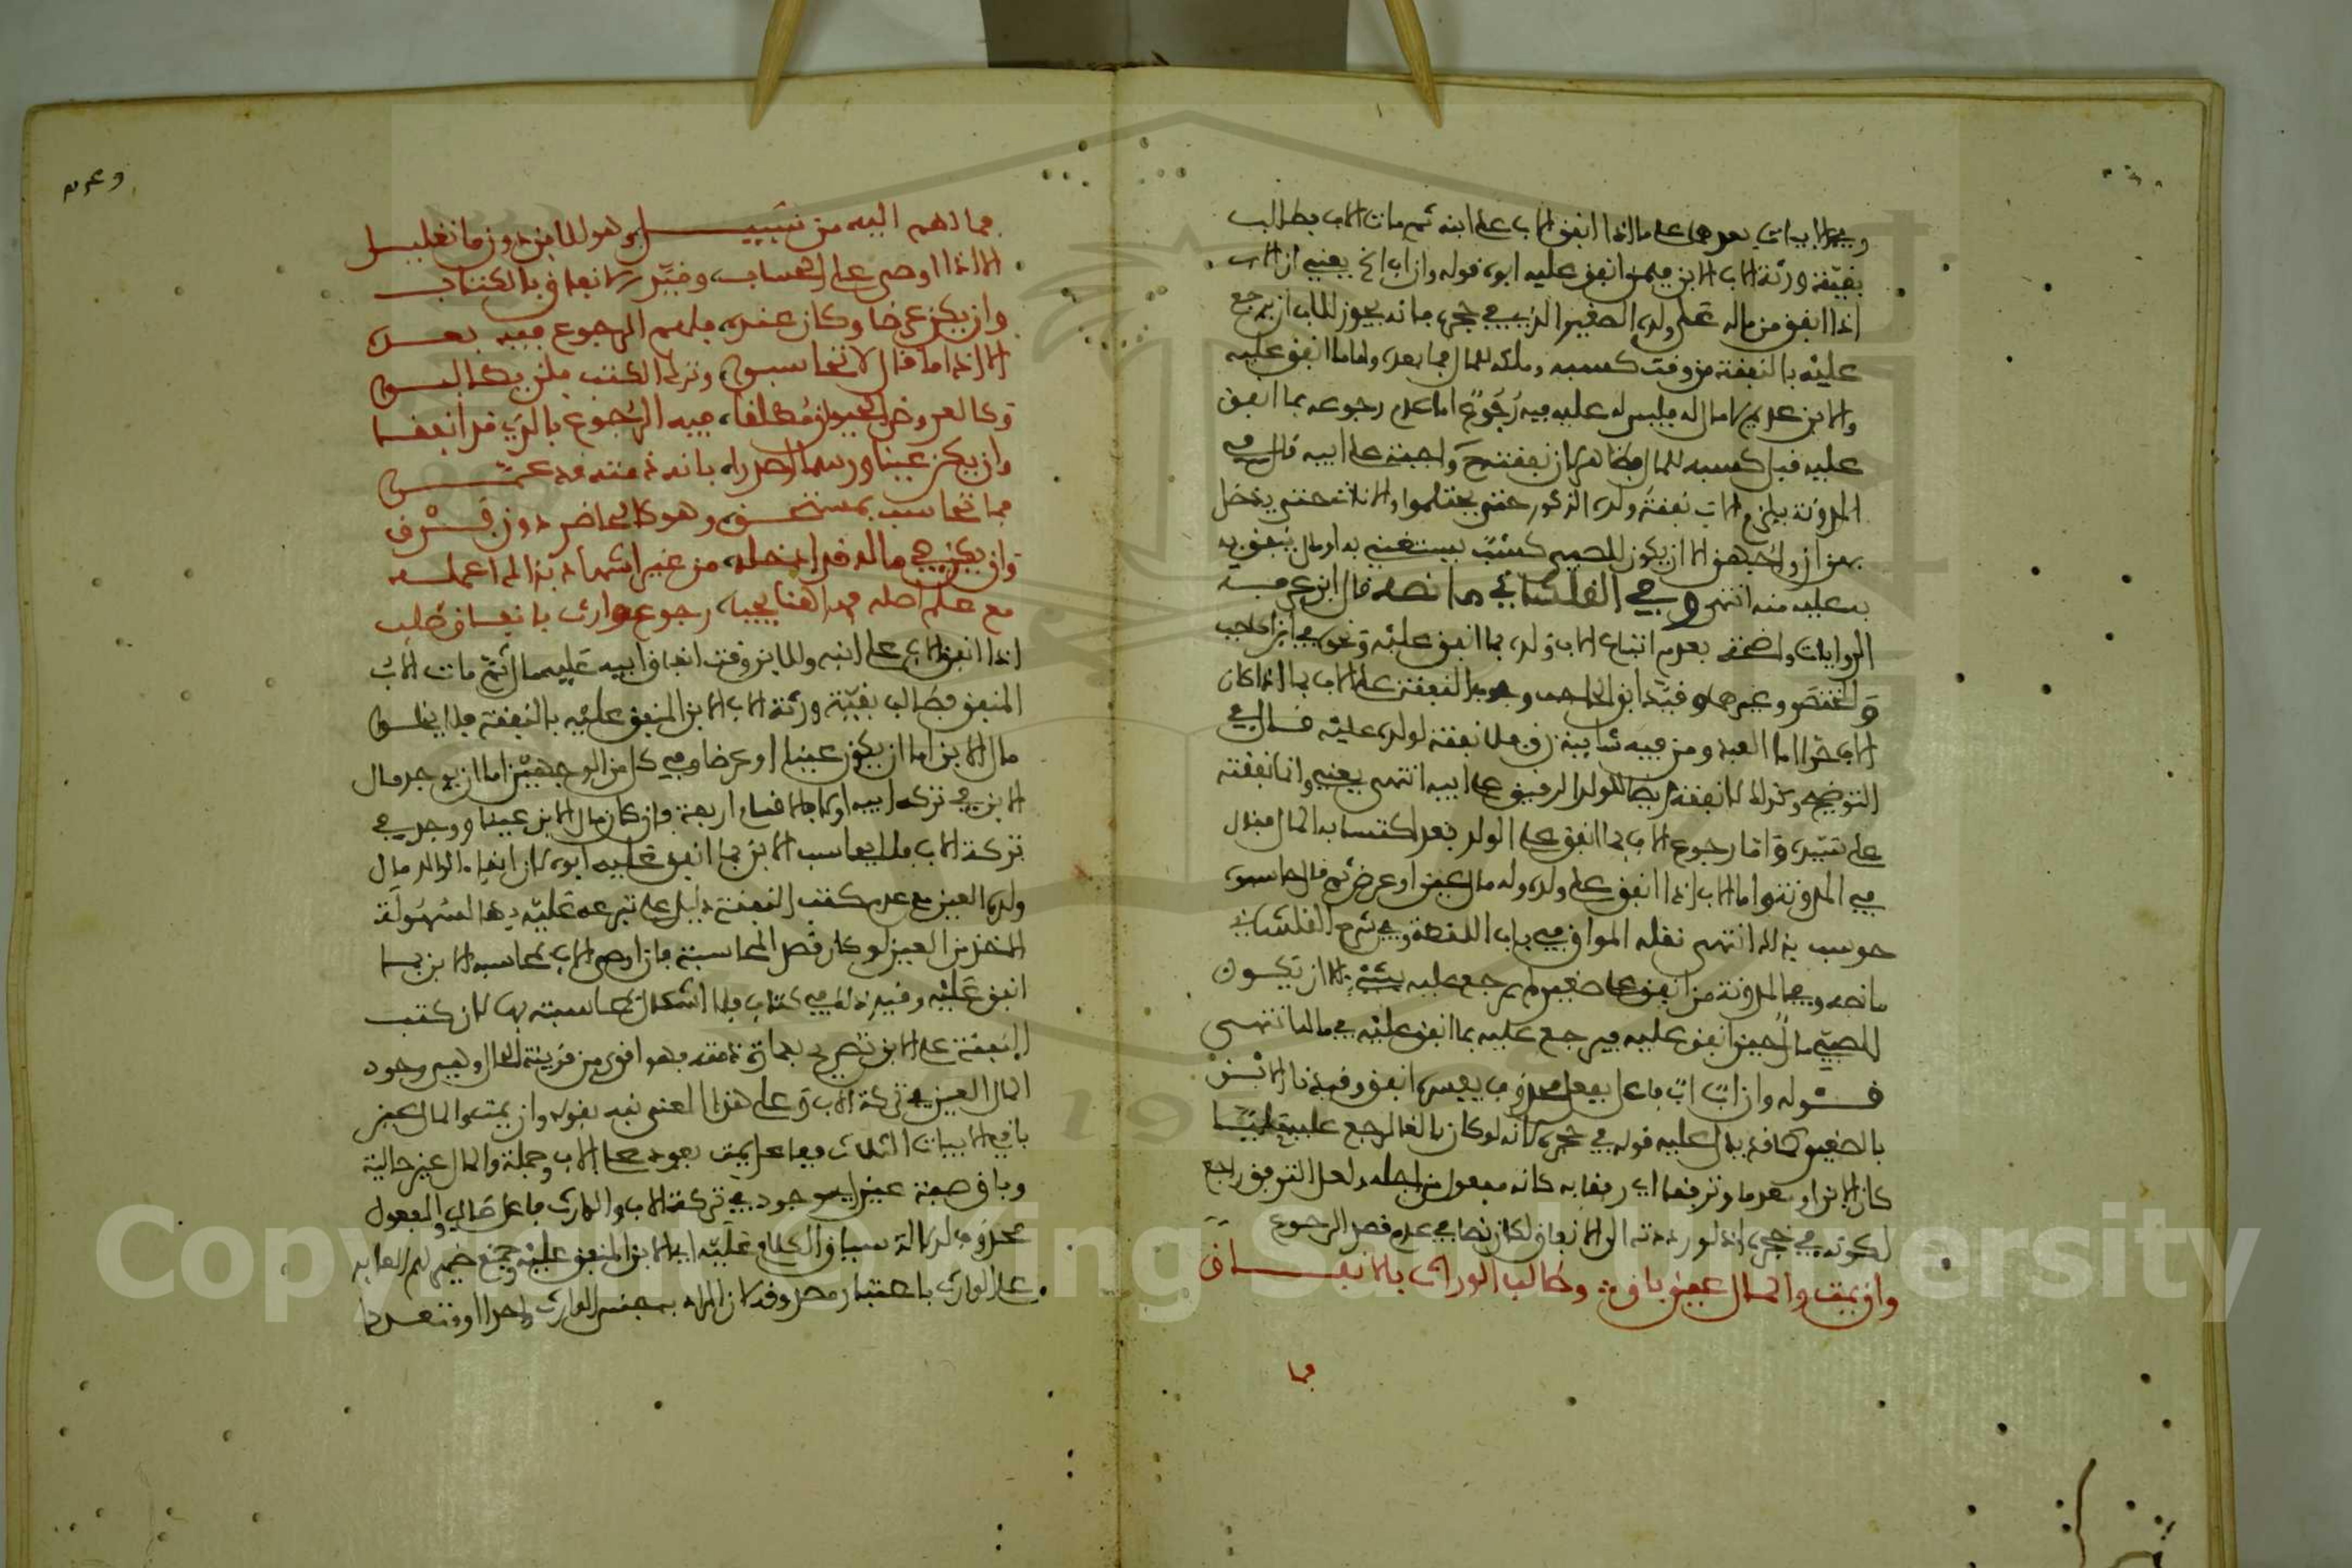 وفي الابيات التي بعدها على ما اذا انفق الاب على ابنه ثم مات الاب فطالب
بقية ورثة الاب الابن فيمن انفق عليه ابوه قوله وان اب الخ يعني ان الاب
اذا انفق من ماله على ولده الصغير الذي في حجره فانه يجوز للاب ان يرجع
عليه بالنفقة من وقت كسبه وملكه للمال فيما بعده واما ما انفق عليه
والابن عديم لا مال له فليس له عليه فيه رجوع اما عدم رجوعه بما انفق
عليه قبل كسبه للمال فظاهر لان نفقته واجبة على ابيه قال في
المدونة يلزم الاب نفقة ولده الذكور حتى يحتلموا والاناث حتى يدخل
بهن ازواجهن الا ان يكون للصبي كسب يستغني به او مال ينفق به
عليه منه انتهى وفي القلشاني ما نصه قال ابن عرفة
الروايات واضحة بعدم اتباع الاب ولده بما انفق عليه ونحوه في ابن الحاجب
والمختصر وغيرهما وقيد ابن الحاجب وجوب النفقة على الاب بما اذا كان
الاب حرا اما العبد ومن فيه شايبة رق فلا نفقة لولده عليه قال في
التوضيح وكذلك لا نفقة ايضا للولد الرقيق على ابيه انتهى يعني وانما نفقته
على سيده واما رجوع الاب بما انفق على الولد بعد اكتسابه المال فقال
في المدونة واما الاب اذا انفق على ولده وله مال عين او عرض ثم قال حاسبوه
حوسب بذلك انتهى نقله المواق في باب اللقطة وفي شرح القلشاني
ما نصه وفي المدونة من انفق على صغير لم يرجع عليه بشيء الا ان يكون
للصبي مال حين انفق عليه فيرجع عليه بما انفق عليه في ماله انتهى
قوله وان اب اب فاعل بفعل محذوف يفسره انفق وقيدنا الابن
بالصغير كما قد يدل عليه قوله في حجره لانه لو كان بالغا لرجع عليه
كان الابن او معدما وترفقا اي رفقا به كانه مفعول من اجله ولعل الترفق راجع
لكونه في حجره اذ لو رددته الى الانفاق لكان نصا في عدم قصد الرجوع
وان يمت والمال عين باق وطالب الوارث بالانفاق
فما
وعرم
فما لهم اليه من سبيل وهو للابن دون ما تعليل
الا اذا اوصى على الحساب وقيد الانفاق بالكتاب
وان يكن عرضا وكان عنده فلهم الرجوع فيه بعده
الا اذا ما قال لا تحاسبوه وترك الكتب فلن يطالبوه
وكالعروض الحيوان مطلقا فيه الرجوع بالذي قد انفقا
وان يكن عينا ورسما اصدرا بانه ذمته قد عمرا
فما تحاسب بمستحق وهو كالحاضر دون فرق
وان يكن في ماله قد ادخله من غير اشهاد بذاك اعمله
مع علم اصله فهاهنا يجب رجوع وارث بانفاق طلب
اذا انفق الاب على ابنه وللابن وقت انفاق ابيه عليه مال ثم مات الاب
المنفق فطالب بقية ورثة الاب الابن المنفق عليه بالنفقة فلا يخلو
مال الابن اما ان يكون عينا او عرضا وفي كل من الوجهين اما ان يوجد مال
الابن في تركة ابيه او لا فالاقسام اربعة فان كان مال الابن عينا ووجد في
تركة الاب فلا يحاسب الابن بما انفق عليه ابوه لان ابقاء الوالد مال
ولده العين مع عدم كتب النفقة دليل على تبرعه عليه بها لسهولة
الاخذ من العين لو كان قصد المحاسبة فان اوصى الاب بمحاسبة الابن بما
انفق عليه وقيد ذلك في كتاب فلا اشكال في محاسبته بها لان كتب
النفقة على الابن تصريح بعمارة ذمته فهو اقوى من قرينة الحال وهي وجود
المال العين في تركة الاب وعلى هذا المعنى نبه بقوله وان يمت والمال عين
باق الابيات الثلاث ففاعل يمت يعود على الاب وجملة والمال عين حالية
وباق صفة عين اي موجود في تركة الاب والوارث فاعل طالب والمفعول
محذوف لدلالة سياق الكلام عليه اي الابن المنفق عليه وجمع ضمير لهم العايد
على الوارث باعتبار معناه وقد كان المراد به جنس الوارث واحدا او متعددا